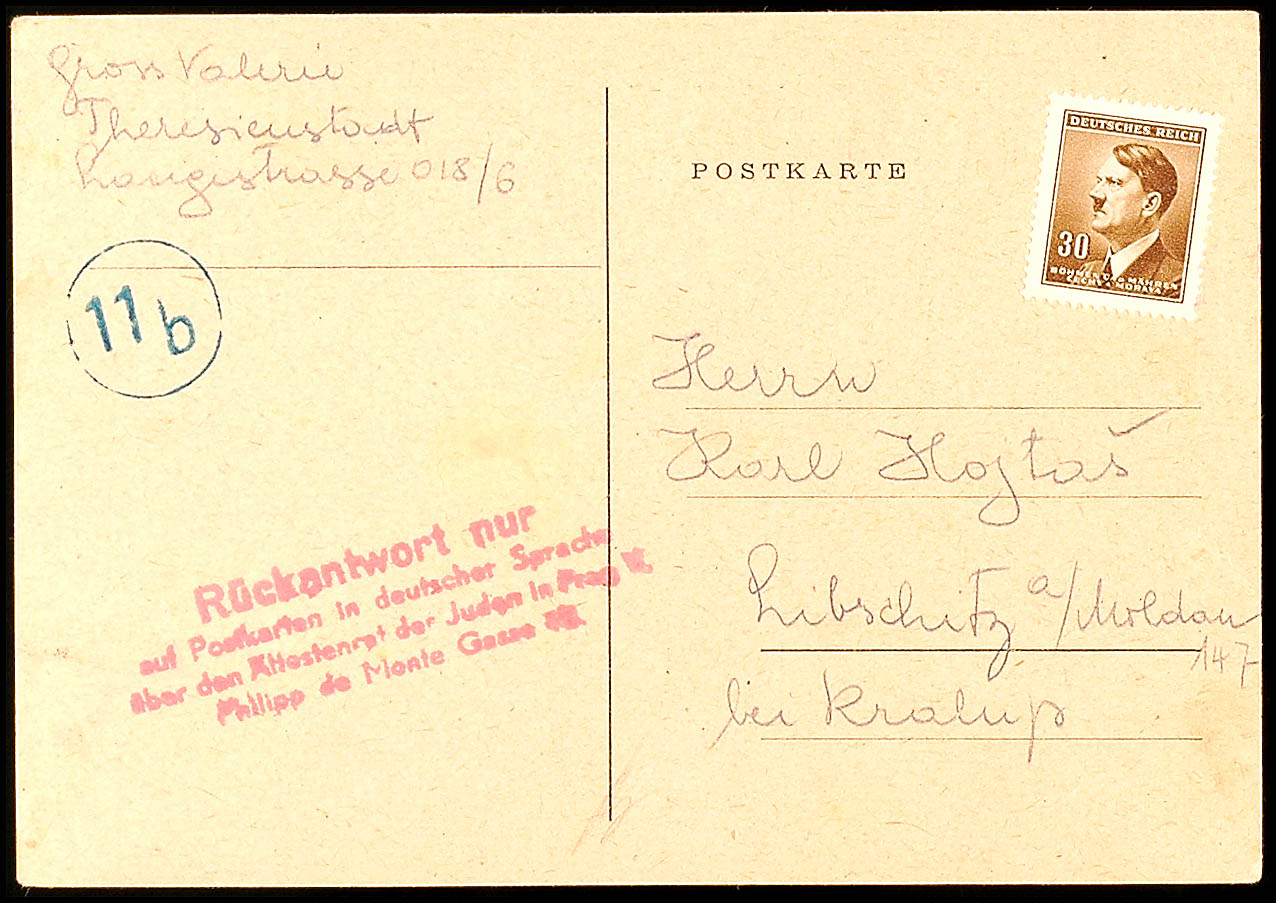 Gross Valerie
Theresienstadt
Langestrasse 018/6
11b
Rückantwort nur
auf Postkarten in deutscher Sprache
über den Ältestenrat der Juden in Prag V.
Philipp de Monte Gasse
POSTKARTE
DEUTSCHES REICH
30
BÖHMEN UND MÄHREN
ČECHY A MORAVA
Herrn
Karl Hojtaš
Libschitz a/Moldau
147
bei Kralup